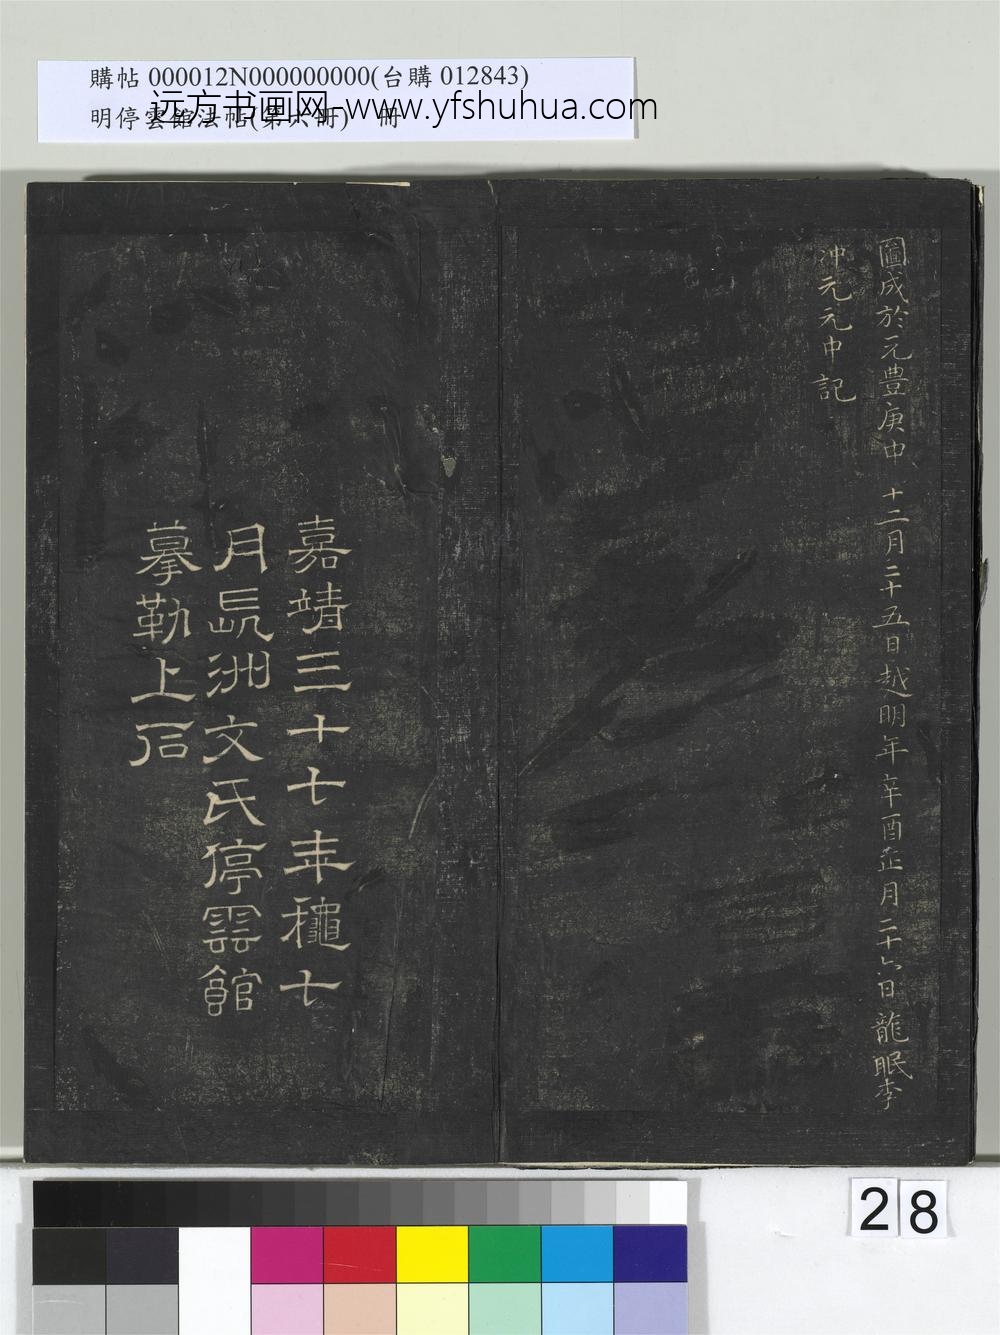 購帖 000012N000000000(台購 012843)
明停雲館法帖(第六冊) 冊
远方书画网-www.yfshuhua.com
圖成於元豊庚申 十二月二十五日越明年辛酉正月二十六日龍眠李
沖元元中記
嘉靖三十七年穐七
月長洲文氏停雲館
摹勒上石
28